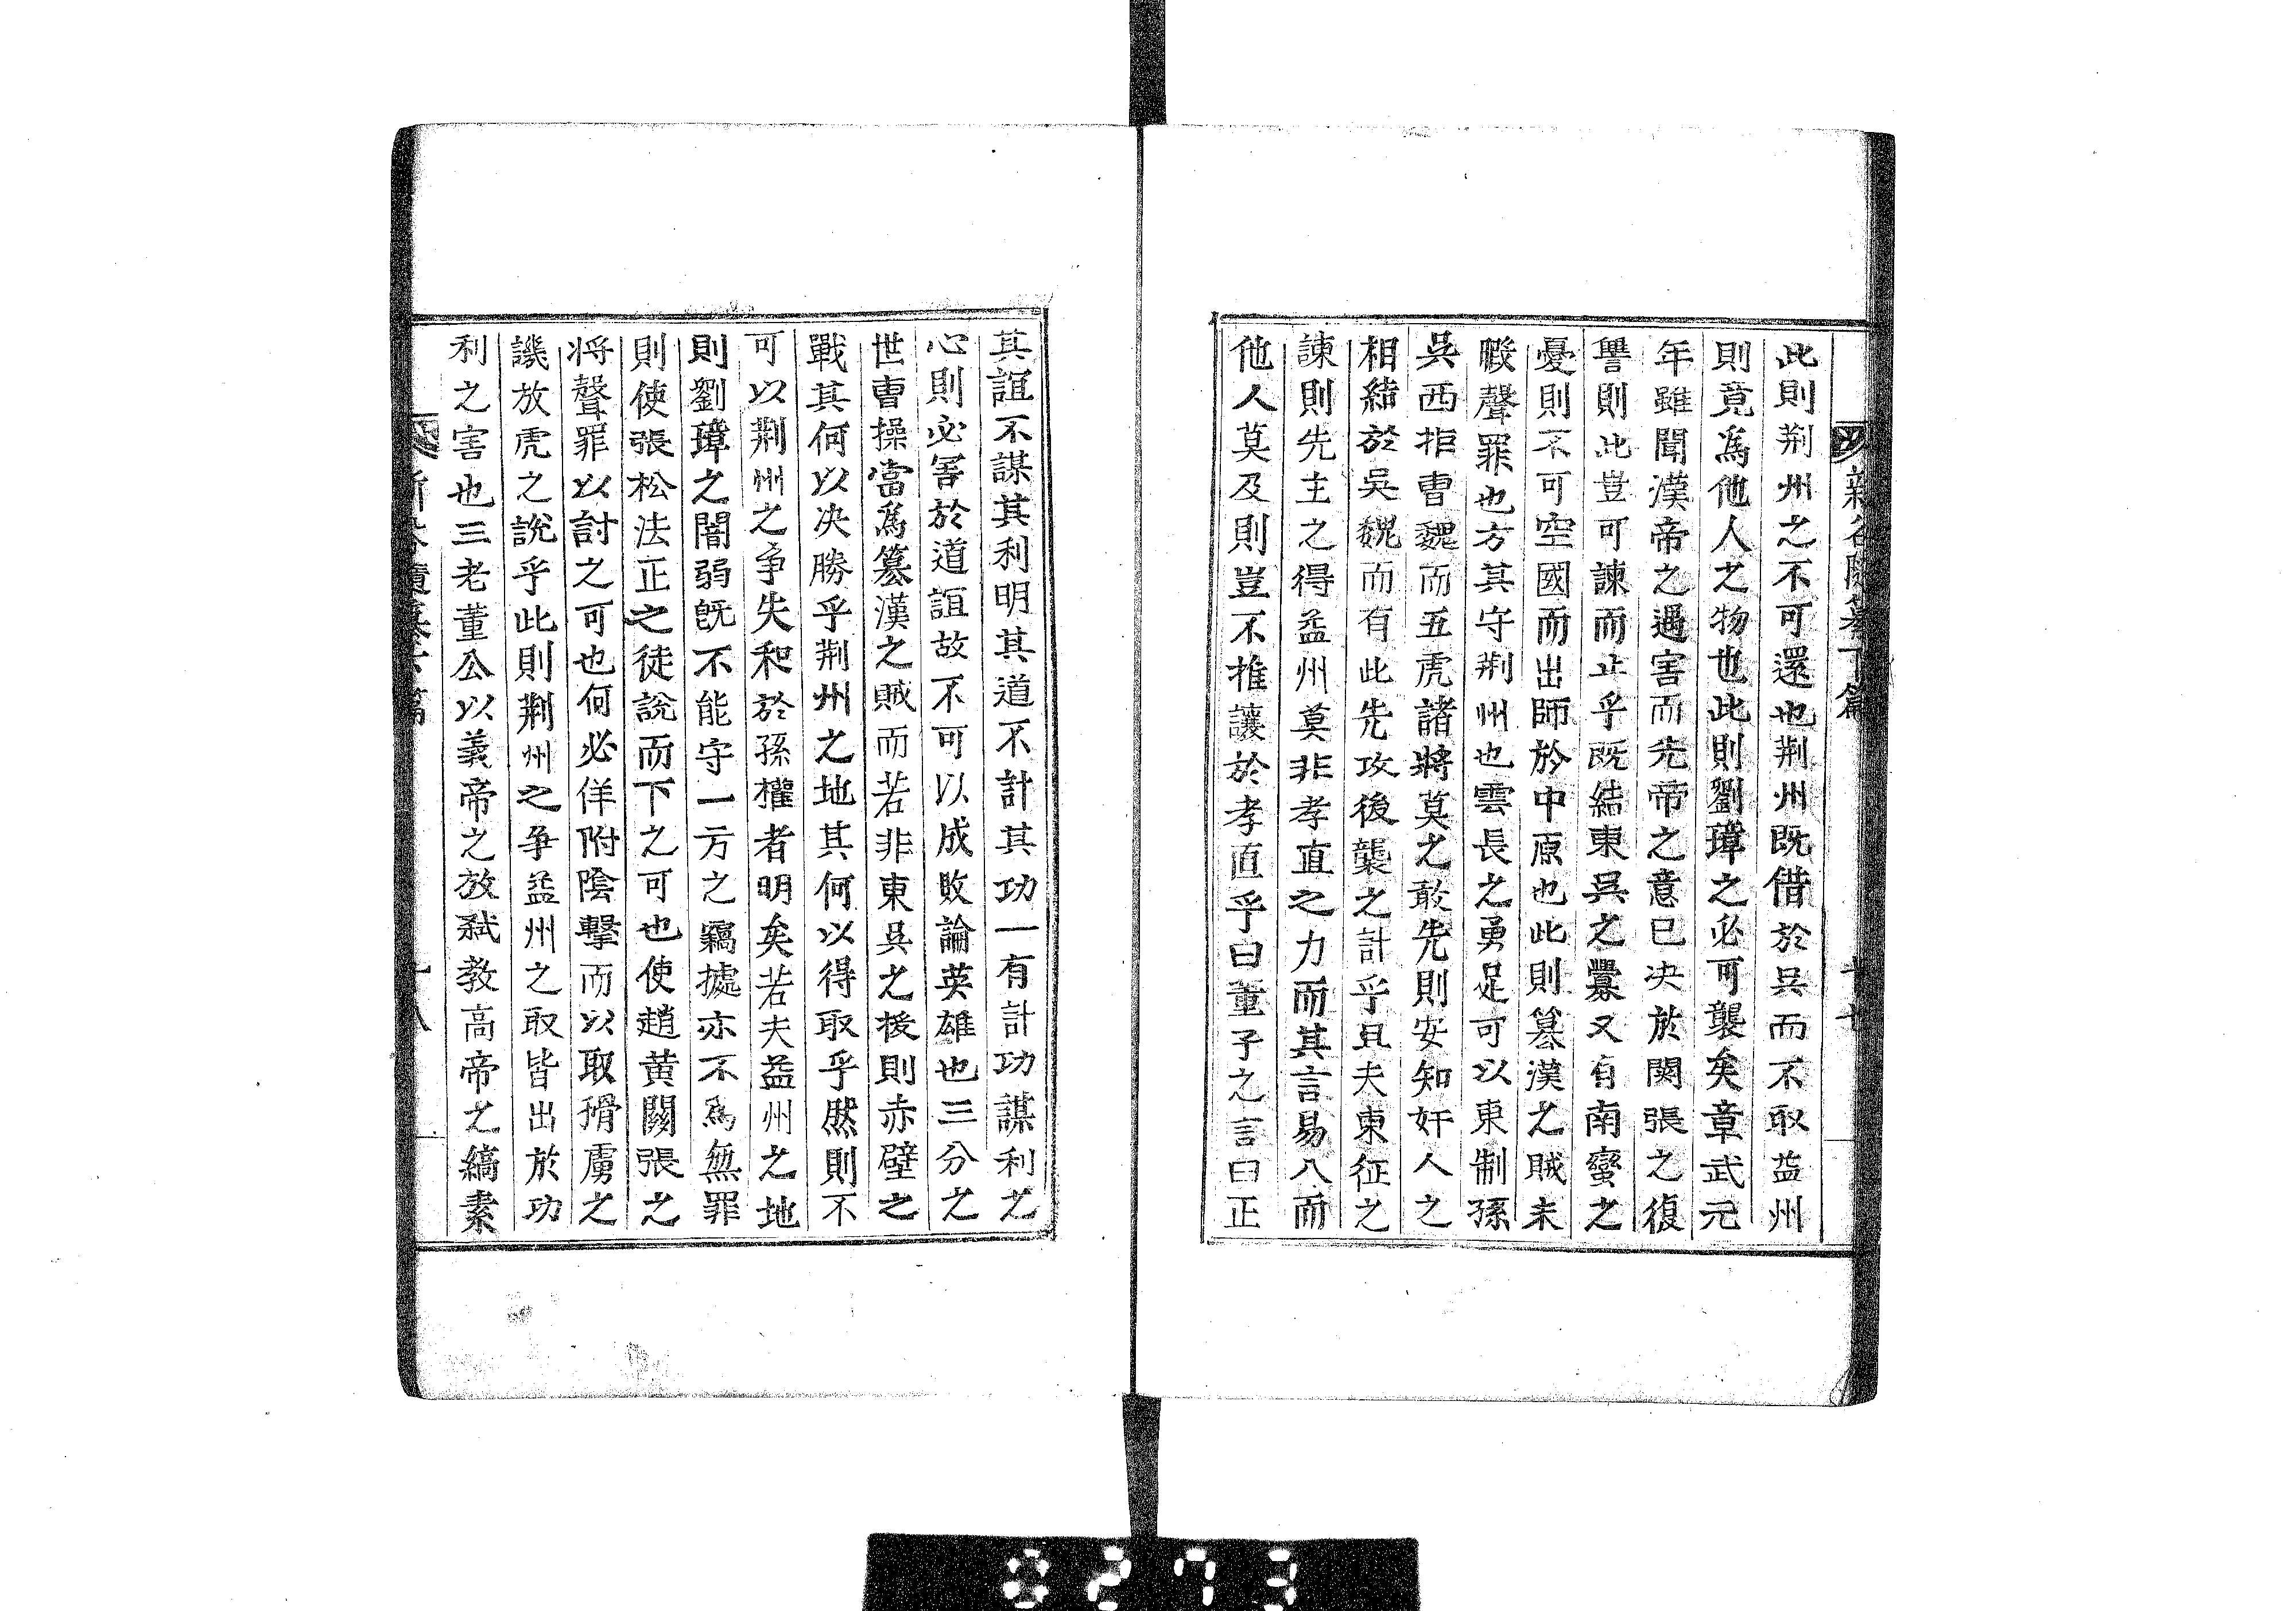 此則荆州之不可還也荆州既借於吳而不取益州
則竟爲他人之物也此則劉璋之必可襲矣章武元
年雖聞漢帝之遇害而先帝之意已决於関張之復
讐則此豈可諫而止乎既結東吳之釁又有南蠻之
憂則不可空國而出師於中原也此則簒漢之賊未
暇聲罪也方其守荆州也雲長之勇足可以東制孫
吳西拒曹魏而五虎諸將莫之敢先則安知奸人之
相結於吳魏而有此先攻後襲之計乎且夫東征之
諫則先主之得益州莫非孝直之力而其言易入而
他人莫及則豈不推讓於孝直乎曰董子之言曰正
其誼不謀其利明其道不計其功一有計功謀利之
心則必害於道誼故不可以成敗論英雄也三分之
世曹操當爲簒漢之賊而若非東吳之援則赤壁之
戰其何以决勝乎荆州之地其何以得取乎然則不
可以荆州之争失和於孫權者明矣若夫益州之地
則劉璋之闇弱旣不能守一方之竊據亦不爲無罪
則使張松法正之徒說而下之可也使趙黄關張之
将聲罪以討之可也何必佯附陰擊而以取猾虜之
譏放虎之說乎此則荆州之争益州之取皆出於功
利之害也三老董公以義帝之放弑教高帝之縞素
8273